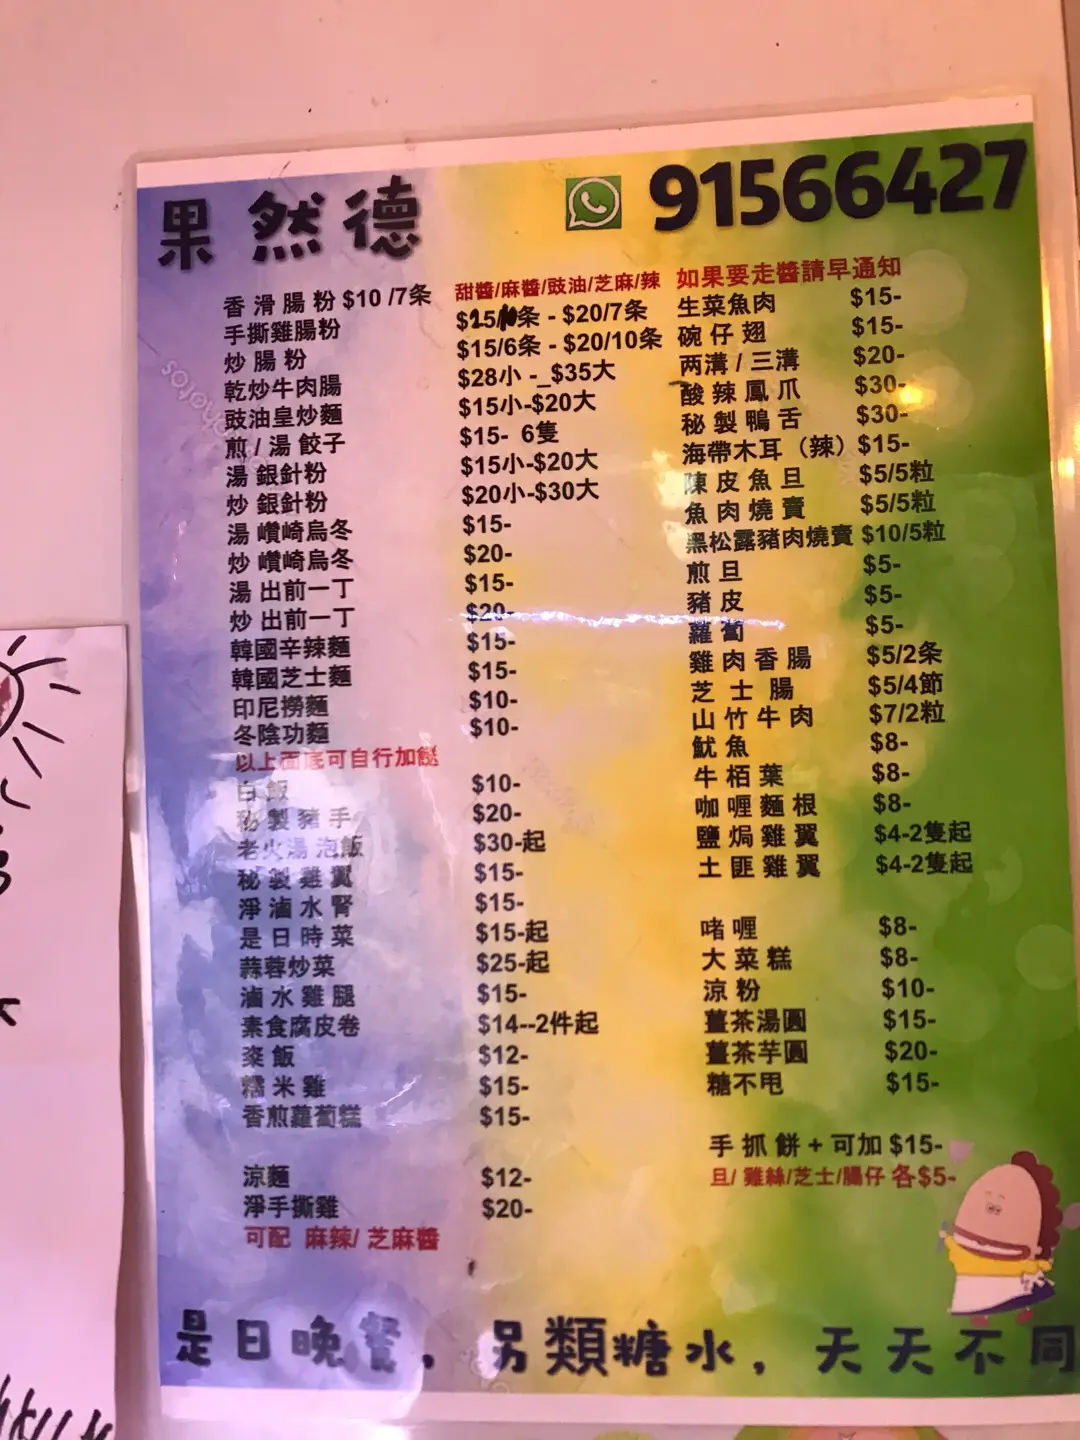 果然德
91566427
香滑腸粉 $10 /7条
甜醬/麻醬/豉油/芝麻/辣
手撕雞腸粉 $15/10条 - $20/7条
炒腸粉 $15/6条 - $20/10条
乾炒牛肉腸 $28小 -_$35大
豉油皇炒麵 $15小-$20大
煎 / 湯 餃子 $15- 6隻
湯 銀針粉 $15小-$20大
炒 銀針粉 $20小-$30大
湯 巑崎烏冬 $15-
炒 巑崎烏冬 $20-
湯 出前一丁 $15-
炒 出前一丁 $20-
韓國辛辣麵 $15-
韓國芝士麵 $15-
印尼撈麵 $10-
冬陰功麵 $10-
以上面底可自行加餸
白飯 $10-
秘製豬手 $20-
老火湯泡飯 $30-起
秘製雞翼 $15-
淨滷水腎 $15-
是日時菜 $15-起
蒜蓉炒菜 $25-起
滷水雞腿 $15-
素食腐皮卷 $14--2件起
粢飯 $12-
糯米雞 $15-
香煎蘿蔔糕 $15-
涼麵 $12-
淨手撕雞 $20-
可配 麻辣/ 芝麻醬
如果要走醬請早通知
生菜魚肉 $15-
碗仔翅 $15-
两溝 / 三溝 $20-
酸辣鳳爪 $30-
秘製鴨舌 $30-
海帶木耳（辣）$15-
陳皮魚旦 $5/5粒
魚肉燒賣 $5/5粒
黑松露豬肉燒賣 $10/5粒
煎旦 $5-
豬皮 $5-
蘿蔔 $5-
雞肉香腸 $5/2条
芝士腸 $5/4節
山竹牛肉 $7/2粒
魷魚 $8-
牛栢葉 $8-
咖喱麵根 $8-
鹽焗雞翼 $4-2隻起
土匪雞翼 $4-2隻起
啫喱 $8-
大菜糕 $8-
涼粉 $10-
薑茶湯圓 $15-
薑茶芋圓 $20-
糖不甩 $15-
手抓餅 + 可加 $15-
旦/ 雞絲/芝士/腸仔 各$5-
是日晚餐，另類糖水，天天不同